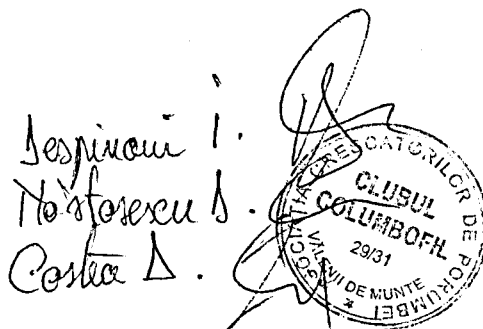 Despinoiu I.
Năstăsescu D.
Costea D.
ASOCIAȚIA CRESCĂTORILOR DE PORUMBEI
CLUBUL
COLUMBOFIL
29/31
VĂLENII DE MUNTE